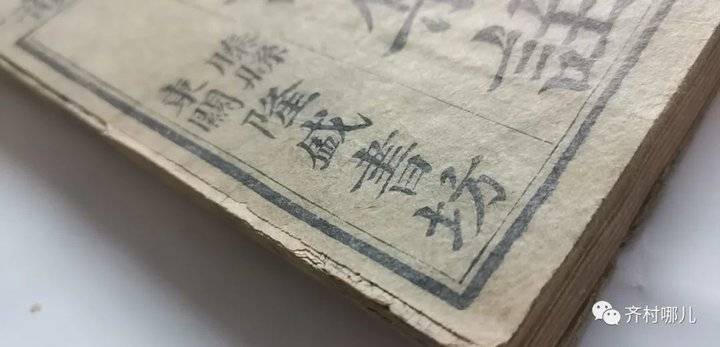 滕縣
東關
隆盛書坊
齐村哪儿